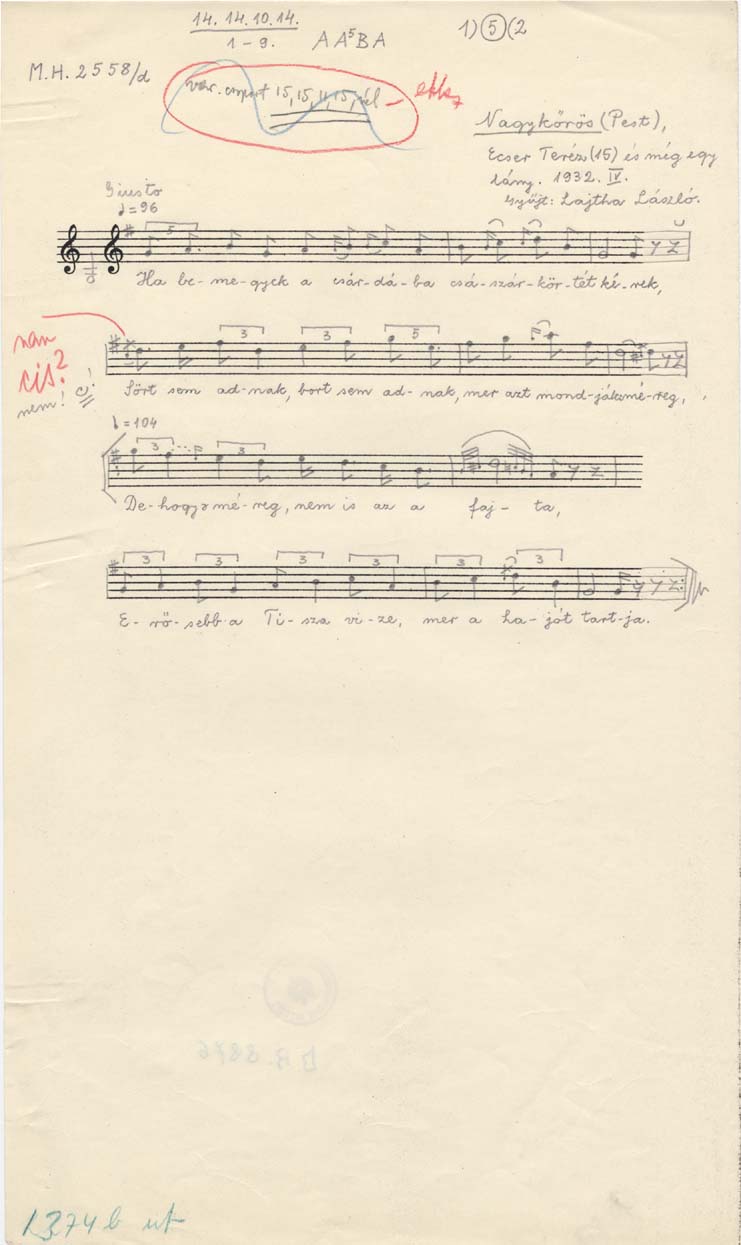 14. 14. 10. 14.
1 – 9. A A⁵ B A
1) 5 (2
M.H. 2558/d
var. csoport 15, 15, 11, 15, -
Nagykőrös (Pest),
Ecser Teréz (15) és még egy
lány. 1932. IV.
Gyűjt: Lajtha László.
Giusto
♩= 96
5
Ha be-me-gyek a csár-dá-ba csá-szár-kör-tét ké-rek,
nem
cis?
nem! c!
3 3 5
Sört sem ad-nak, bort sem ad-nak, mer azt mond-ják mé-reg,
♩= 104
3 3
De-hogy mé-reg, nem is az a faj-ta,
3 3 3 3 3 3
E-rő-sebb a Ti-sza vi-ze, mer a ha-jót tart-ja.
1374 b